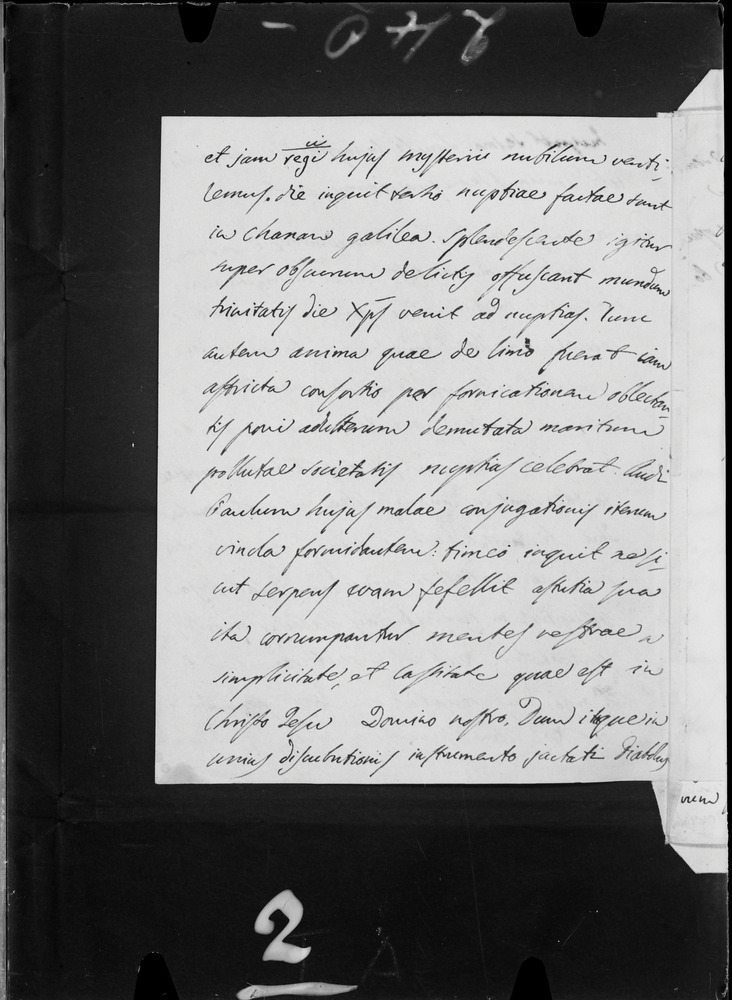 240-
et jam regi hujus mysterii nubilum venti-
lemus. die inquit tertio nuptiae factae sunt
in chanan galilea. Splendescente igitur
super obscurum delictis offuscant mundum
trinitatis die Xps venit ad nuptias. Tunc
autem anima quae de limo fuerat iam
astricta consortio per fornicationem oblectan-
tis pomi adulterum demutata maritum
pollutae societatis nuptias celebrat. Audi
Paulum hujus malae conjugationis iterum
vincla formidantem: timeo inquit ne si-
cut serpens evam fefellit astutia sua
ita corrumpantur mentes vestrae a
simplicitate, et castitate quae est in
Christo Jesu Domino nostro. Dum itaque in
unius discubitionis instrumento jactati diabolus
2